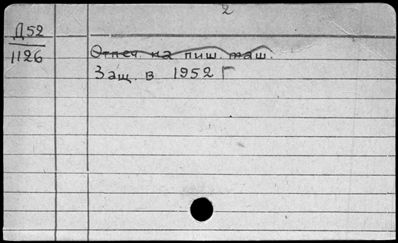 2
Д52
1126
Отпеч. на пиш. маш.
Защ. в 1952 г